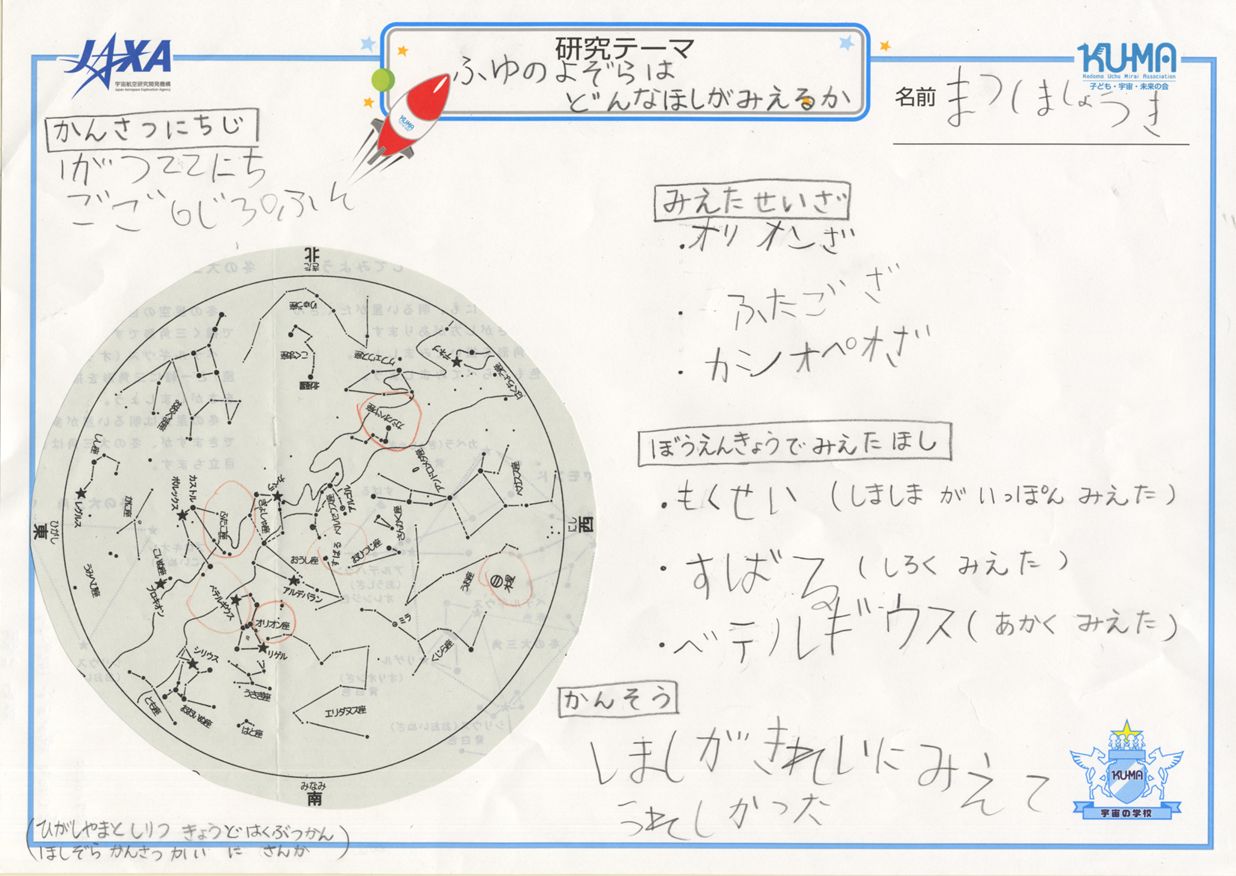 JAXA
宇宙航空研究開発機構
Japan Aerospace Exploration Agency
研究テーマ
ふゆのよぞらは
どんなほしがみえるか
KUMA
KU-MA
Kodomo Uchu Mirai Association
子ども・宇宙・未来の会
名前 まつしましょうき
かんさつにちじ
1がつ22にち
ごご6じ30ぷん
みえたせいざ
・オリオンざ
・ふたござ
・カシオペオざ
ぼうえんきょうでみえたほし
・もくせい(しましまがいっぽんみえた)
・すばる(しろくみえた)
・ベテルギウス(あかくみえた)
かんそう
しましがきれいにみえて
うれしかった
北
きた
りゅう座
こぐま座
北極星
ケフェウス座
デネブ
はくちょう座
おおぐま座
カシオペヤ座
アンドロメダ座
ペガスス座
しし座
レグルス
かに座
カストル
ポルックス
ふたご座
ぎょしゃ座
ペルセウス座
アルゴル
すばる
さんかく座
おひつじ座
おうし座
アルデバラン
東
ひがし
西
にし
うお座
木星
こいぬ座
プロキオン
うみへび座
ベテルギウス
オリオン座
リゲル
ミラ
くじら座
シリウス
おおいぬ座
うさぎ座
はと座
とも座
エリダヌス座
みなみ
南
KUMA
宇宙の学校
(ひがしやまとしりつ きょうどはくぶつかん)
(ほしぞら かんさつ かい に さんか)